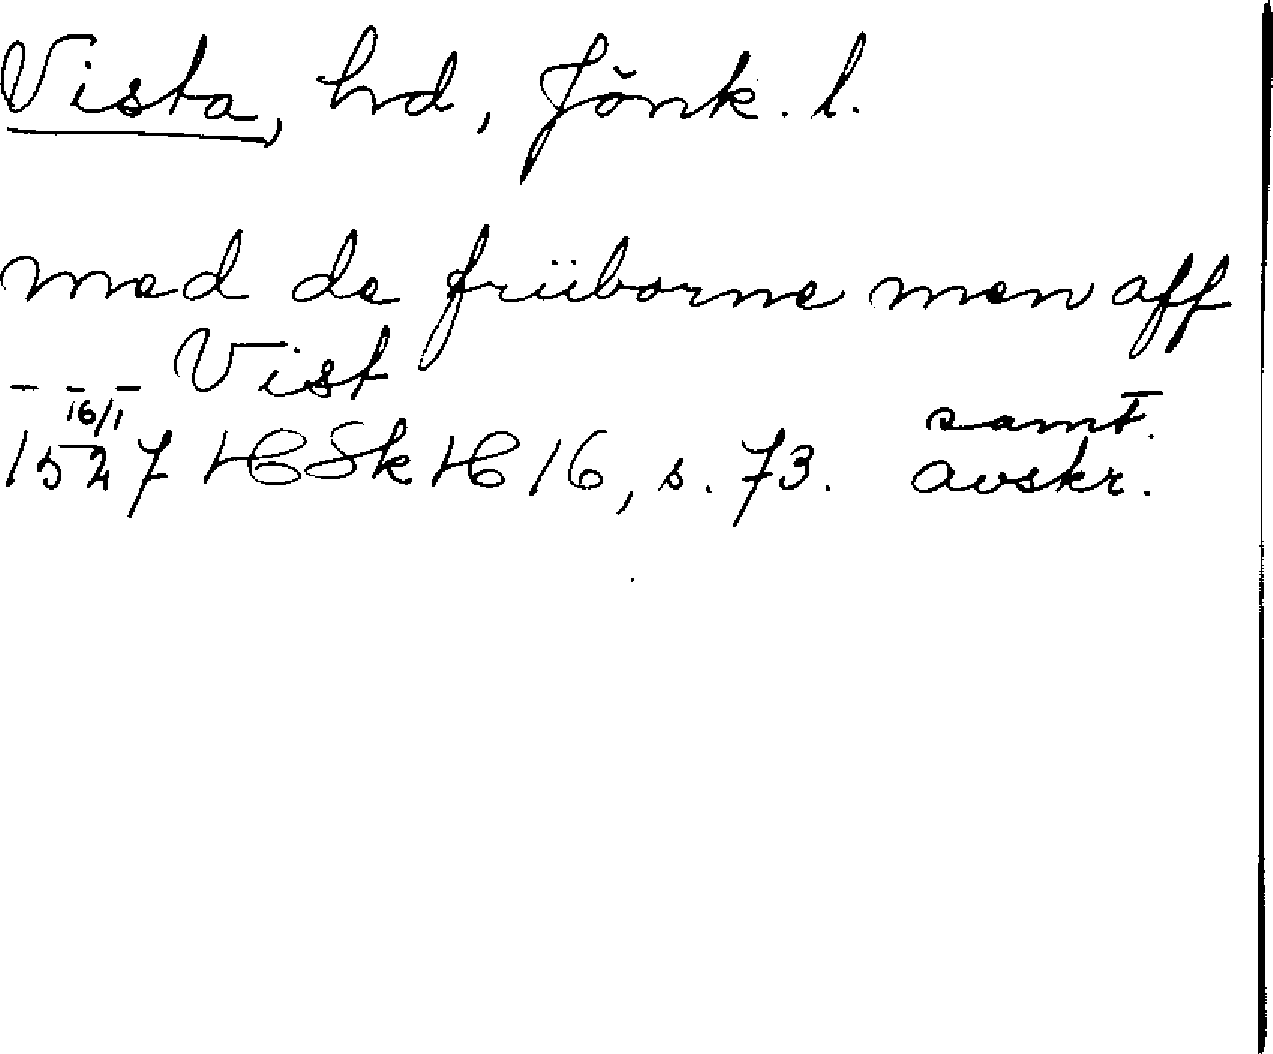 Vista, hd, Jönk. l.
med de friiborne men aff
Vist
- - -
16/1
1527 HSkH 16, s. 73. samt.
avskr.